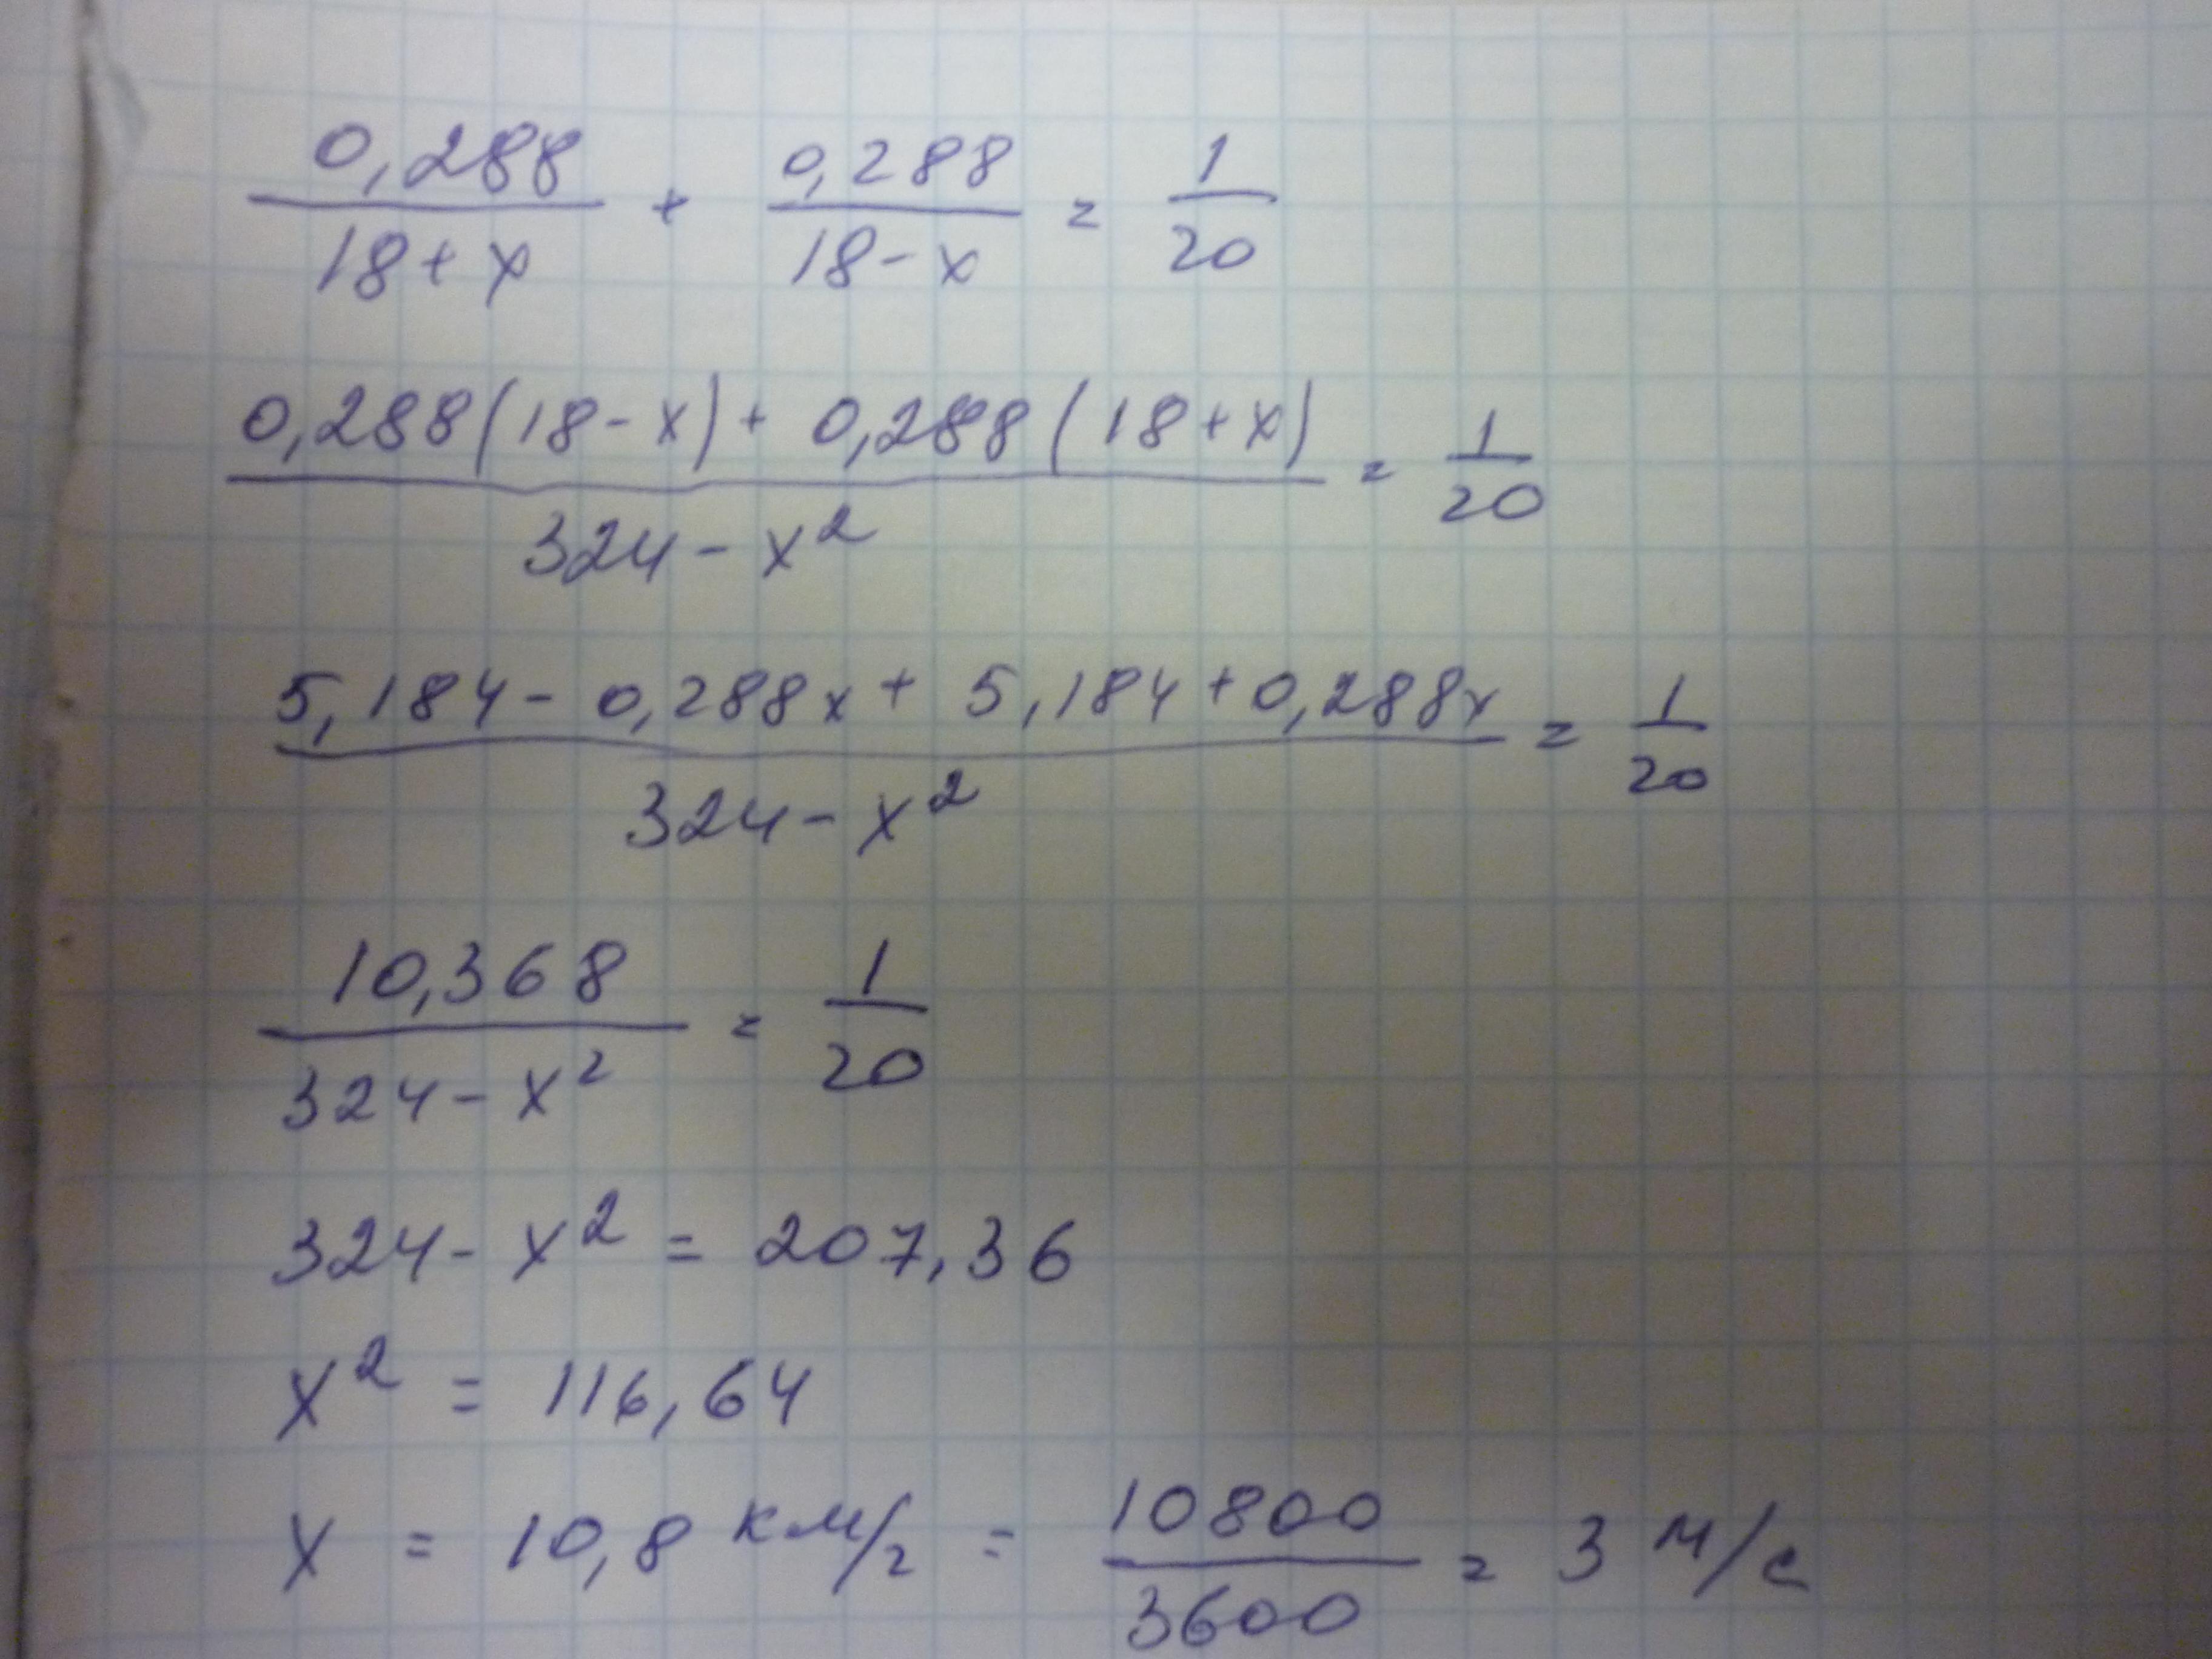 0,288/(18+x) + 0,288/(18-x) = 1/20
(0,288(18-x) + 0,288(18+x))/(324-x²) = 1/20
(5,184 - 0,288x + 5,184 + 0,288x)/(324-x²) = 1/20
10,368/(324-x²) = 1/20
324 - x² = 207,36
x² = 116,64
x = 10,8 км/г = 10800/3600 = 3 м/с